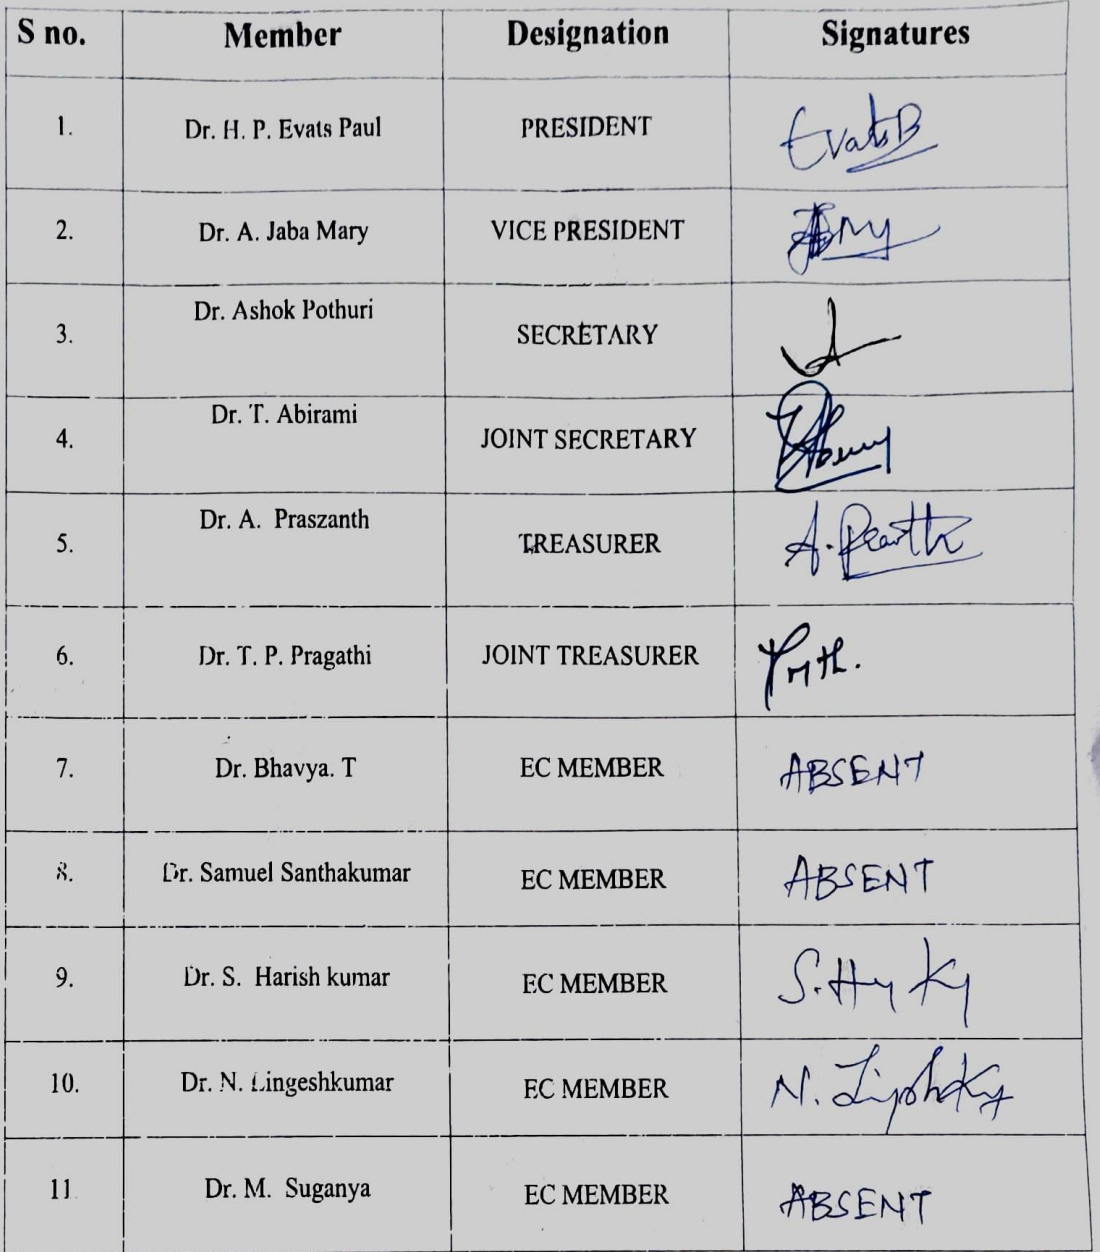 S no. Member Designation Signatures
1. Dr. H. P. Evats Paul PRESIDENT EvatsP
2. Dr. A. Jaba Mary VICE PRESIDENT
3. Dr. Ashok Pothuri SECRETARY
4. Dr. T. Abirami JOINT SECRETARY
5. Dr. A. Praszanth TREASURER
6. Dr. T. P. Pragathi JOINT TREASURER
7. Dr. Bhavya. T EC MEMBER ABSENT
8. Dr. Samuel Santhakumar EC MEMBER ABSENT
9. Dr. S. Harish kumar EC MEMBER
10. Dr. N. Lingeshkumar EC MEMBER
11 Dr. M. Suganya EC MEMBER ABSENT